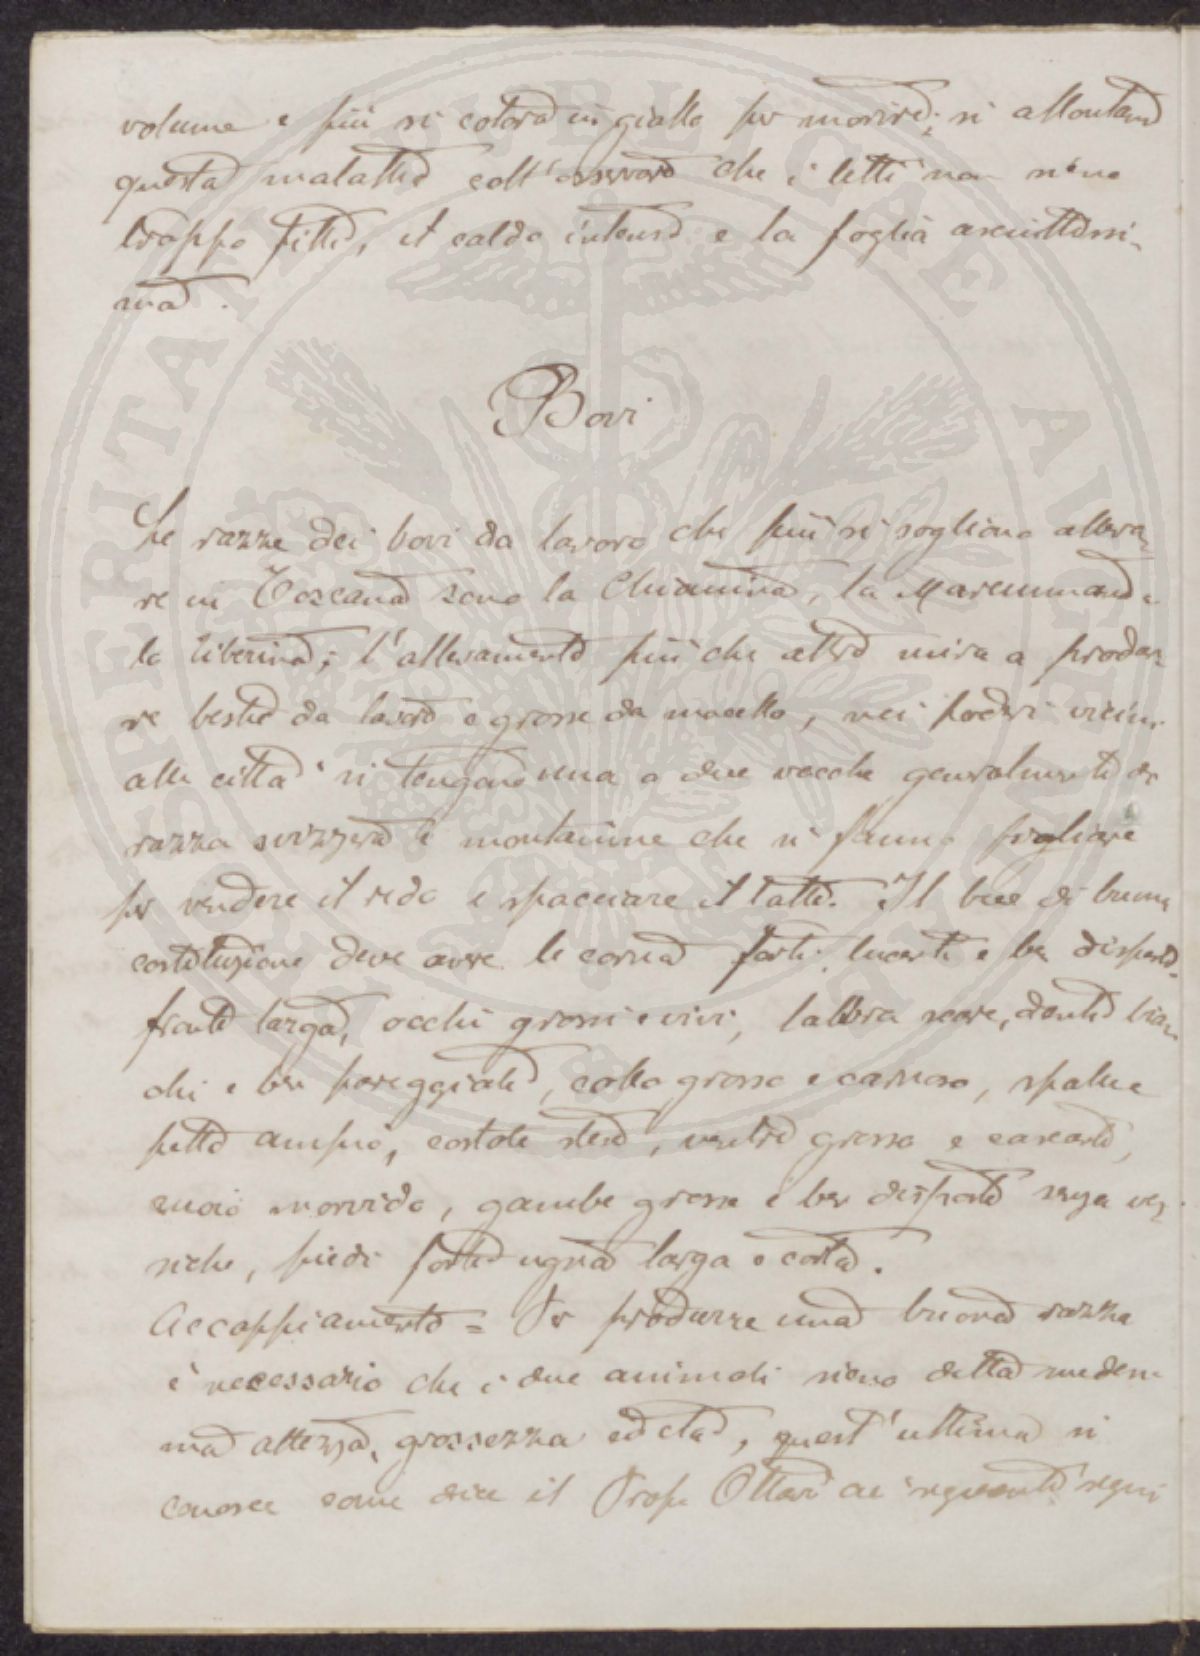 volume e più si colora in giallo per morire; si allontana
questa malattia coll'osservare che i letti non sieno
troppo fitti, il caldo intenso e la foglia asciuttissi-
ma.
Bovi
Le razze dei bovi da lavoro che più si sogliono alleva-
re in Toscana sono la Chianina, la Maremmana e
la Tiberina; l'allevamento più che altro mira a produr-
re bestie da lavoro e grosse da macello, nei poderi vicini
alle città si tengano una o due vacche generalmente di
razza svizzera e montanine che si fanno figliare
per vendere il redo e spacciare il latte. Il bue di buona
costituzione deve avere le corna forti, lucenti e ben disposte,
fronte larga, occhi grossi e vivi, labbra nere, denti bian-
chi e ben pareggiati, collo grosso e carnoso, spalle e
petto ampio, costole stese, ventre grosso e cascante,
cuoio morvido, gambe grosse e ben disposte senza ves-
siche, piedi forti ugna larga e corta.
Accoppiamento = Per produrre una buona razza
è necessario che i due animali sieno della medesi-
ma altezza, grossezza ed età, quest'ultima si
conosce come dice il Prof. Ottavi ai seguenti segni
PROSPERITATI PUBLICAE AUGENDAE